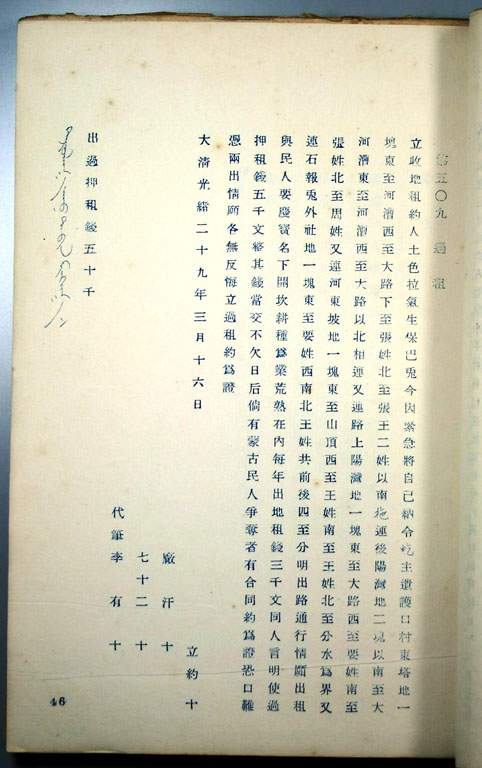 第五〇九 過租
立收地租約人土色拉氣生保巴兎今因緊急將自己納令圪主遺護口村東塔地一
塊東至河漕西至大路下至張姓北至張王二姓以南拖連後陽灣地二塊以南至大
河漕東至河漕西至大路以北相連又連路上陽灣地一塊東至大路西至要姓南至
張姓北至周姓又連河東坡地一塊東至山頂西至王姓南至王姓北至分水為界又
連石報兎外社地一塊東至要姓西南北王姓共前後四至分明出路通行情願出租
與民人要慶賓名下開坎耕種為業荒熟在內每年出地租錢三千文同人言明使過
押租錢五千文整其錢當交不欠日后倘有蒙古民人爭奪者有合同約為證恐口難
憑兩出情願各無反悔立過租約為證
大清光緒二十九年三月十六日
立約十
廠汗十
七十二十
代筆李有十
出過押租錢五十千
46